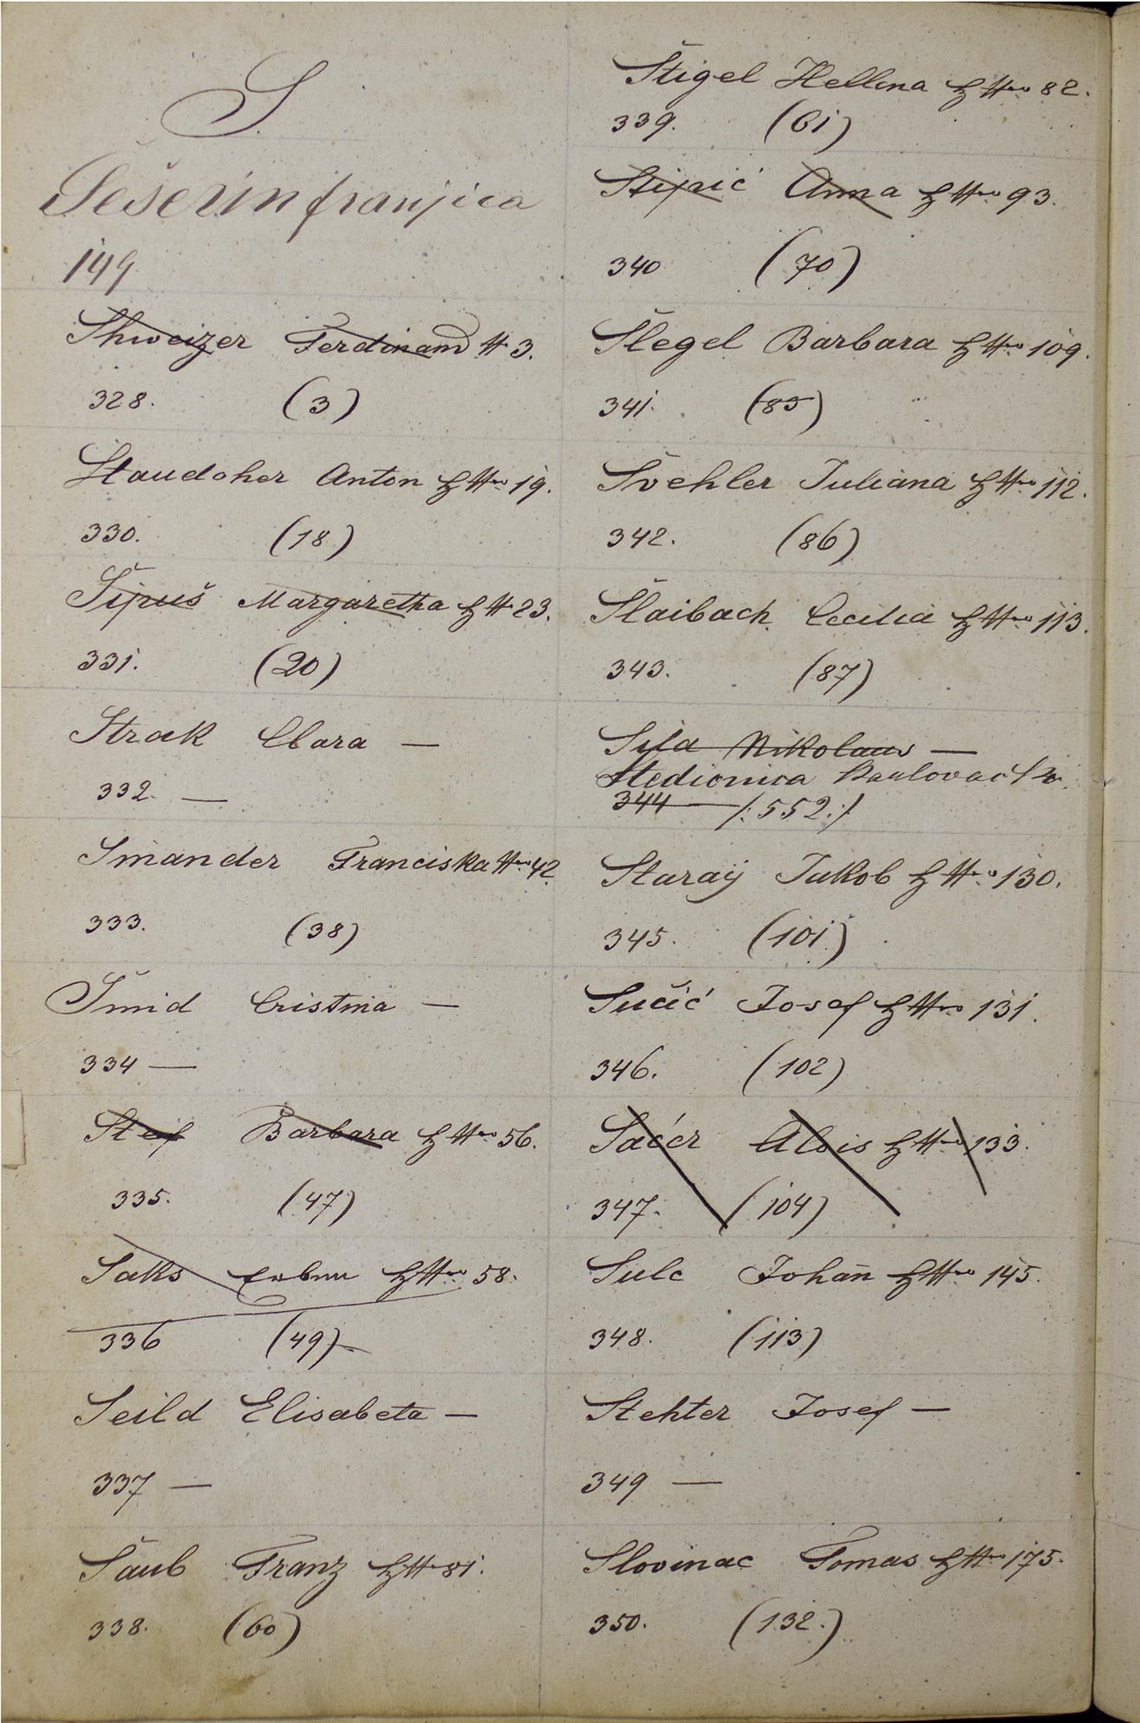 S.
Šešerin franjica
149
Shweizer Ferdinand # 3.
328. (3)
Staudoher Anton H#ro 19.
330. (18)
Šipuš Margaretha H# 23.
331. (20)
Strak Clara —
332. —
Smander Franciska #ro 42.
333. (38)
Šmid Cristina —
334 —
Steif Barbara H#ro 56.
335. (47)
Saks H#ro 58.
336 (49)
Seild Elisabeta —
337 —
Šaub Franz H# 81.
338. (60)
Štigel Hellena H#ro 82.
339. (61)
Stipić Anna H#ro 93.
340 (70)
Šlegel Barbara H#ro 109.
341. (85)
Švehler Juliana H#ro 112.
342. (86)
Slaibach Cecilia H#ro 113.
343. (87)
Sila Nikolaus —
Stedionica
344 — /:552:/
Staraÿ Jakob H#ro 130.
345. (101)
Sučić Josef H#ro 131.
346. (102)
Saćer Alois H#ro 133.
347. (104)
Sulc Johan̄ H#ro 145.
348. (113)
Stehter Josef —
349 —
Slovinac Tomas H#ro 175.
350. (132.)